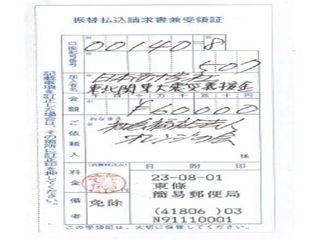 振替払込請求書兼受領証
口座記号番号
00140-8
507
加入者名
日本赤十字社
東北関東大震災義援金
金額
千 百 十 万 千 百 十 円
¥60000
ご依頼人
おなまえ
様
料金
(消費税込み)
日附印
23-08-01
東條
簡易郵便局
(41806 )03
N91110001
備考
免除
記載事項を訂正した場合は、その箇所に訂正印を押してください。
この受領証は、大切に保管してください。